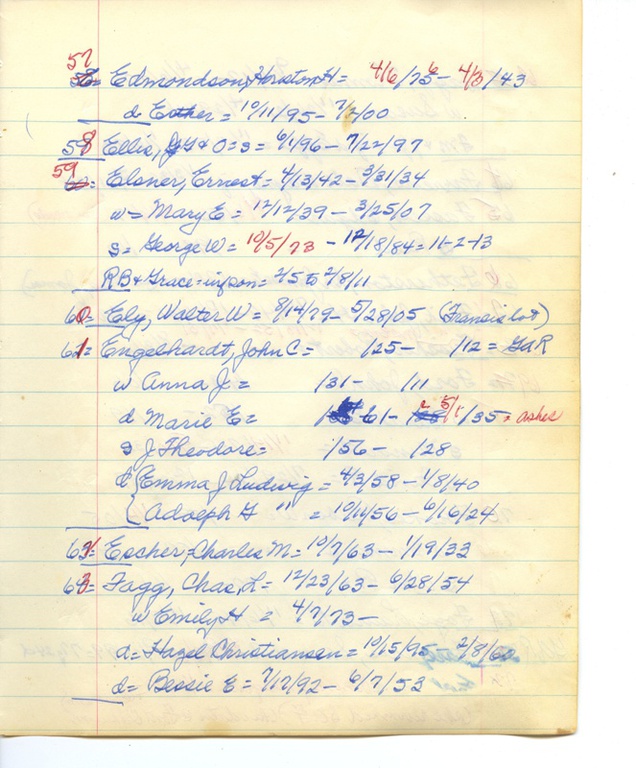 57 Edmondson, Houston H = 4/6/75 - 4/3/43
d Esther = 10/11/95 - 7/2/00
58 Ellis, & O = s = 6/1/96 - 7/22/97
59 = Elsner, Ernest = 4/13/42 - 3/31/34
w = Mary E = 12/12/39 - 3/25/07
s = George W = 10/5/73 - 12/18/84 = 11-2-13
RB & Grace = inf son = 2/5 to 2/8/11
60 = Ely, Walter W = 8/14/79 - 5/28/05 (Francis lot)
61 = Engelhardt, John C = /25 - /12 = GAR
w Anna J = /31 - /11
d Marie E = 61 - 5/1/35 = ashes
s J Theodore = /56 - /28
d { Emma J Ludwig = 4/3/58 - 1/8/40
{ Adolph G " = 10/11/56 - 6/16/24
62 = Escher, Charles M = 10/7/63 - 1/19/33
63 = Fagg, Chas, L = 12/23/63 - 6/28/54
w Emily H = 4/7/73 -
d = Hazel Christiansen = 10/15/95 2/8/60
d = Bessie E = 7/17/92 - 6/7/53